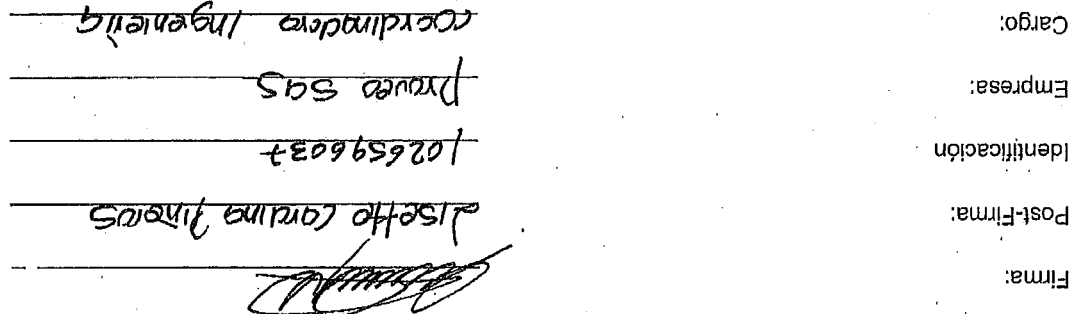 Firma:
Post-Firma: Lisette Carolina Piñeros
Identificación 1026596037
Empresa: Proveo SAS
Cargo: Coordinadora Ingeniería